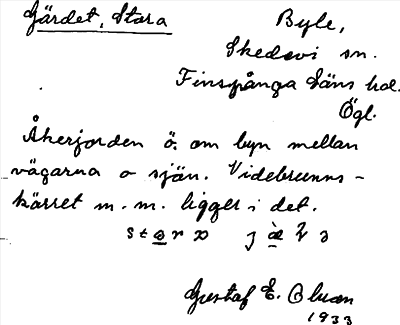 Gärdet, Stora
Byle,
Skedevi sn.
Finspånga läns hd.
Ögl.
Åkerjorden ö. om byn mellan
vägarna o sjön. Videbrunns-
kärret m.m. ligger i det.
Gustaf E. Bluan
1933